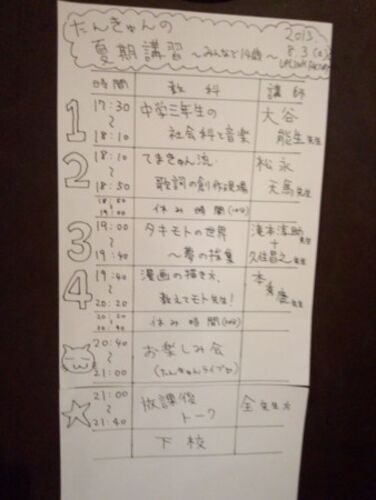 たんきゅんの
夏期講習 〜みんなで14歳〜
2013.
8.3(土)
UPLINK FACTORY
時間 教科 講師
1 17:30 〜 18:10 中学三年生の 社会科と音楽 大谷 能生先生
2 18:10 〜 18:50 てまきゅん流 歌詞の創作現場 松永 天馬先生
18:50 〜 19:00 休み時間(10分)
3 19:00 〜 19:40 タキモトの世界 〜夢の採集 滝本淳助先生 + 久住昌之先生
4 19:40 〜 20:20 漫画の描き方、 教えてモト先生! 本秀康先生
20:20 〜 20:40 休み時間(20分)
20:40 〜 21:00 お楽しみ会 (たんきゅんライブか)
21:00 〜 21:40 放課後 トーク 全先生方
下校